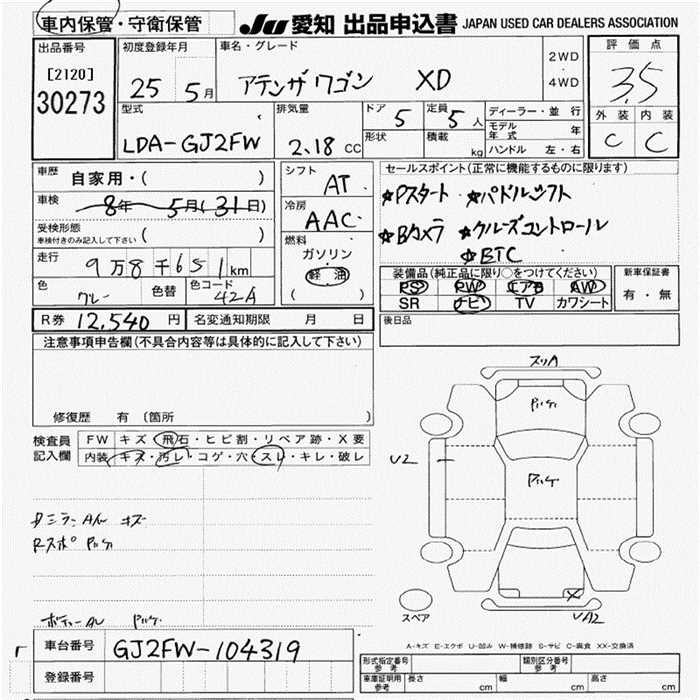 車内保管・守衛保管 JU 愛知 出品申込書 JAPAN USED CAR DEALERS ASSOCIATION
出品番号 初度登録年月 車名・グレード 評価点
[2120] 25 5月 アテンザワゴン XD 2WD・4WD 3.5
30273
型式 排気量 ドア 5 定員 5人 ディーラー・並行 外装 内装
LDA-GJ2FW 2.18CC 形状 積載 kg モデル年式 年 C C
ハンドル 左・右
車歴 自家用・( ) シフト AT セールスポイント(正常に機能するものに限ります)
車検 8年 5月(31日) 冷房 AAC ☆Pスタート ☆パドルシフト
受検形態 ( ) 燃料 ☆Bカメラ ☆クルーズコントロール
車検付きのみ記入して下さい ガソリン ☆BTC
走行 9万8千651km 軽油 装備品(純正品に限り○をつけてください) 新車保証書
色 グレー 色替 色コード 42A ( ) PS PW エアB AW 有・無
SR ナビ TV カワシート
R券 12,540円 名変通知期限 月 日 後日品
注意事項申告欄(不具合内容等は具体的に記入して下さい)
修復歴 有 〔箇所 〕
スリA
ピッケ
検査員記入欄 FW キズ・飛石・ヒビ割・リペア跡・X要
内装 キズ・汚レ・コゲ・穴・スレ・キレ・破レ
U2
ピッケ
ミラーAW キズ
Rスポ ピッケ
ボディーAL ピッケ
X
UA2
スペア
A-キズ E-エクボ U-凹み W-補修跡 S-サビ C-腐食 XX-交換済
車台番号 GJ2FW-104319
登録番号
形式指定番号 参考 類別区分番号 参考
車庫証明用 参考 長さ cm 幅 cm 高さ cm